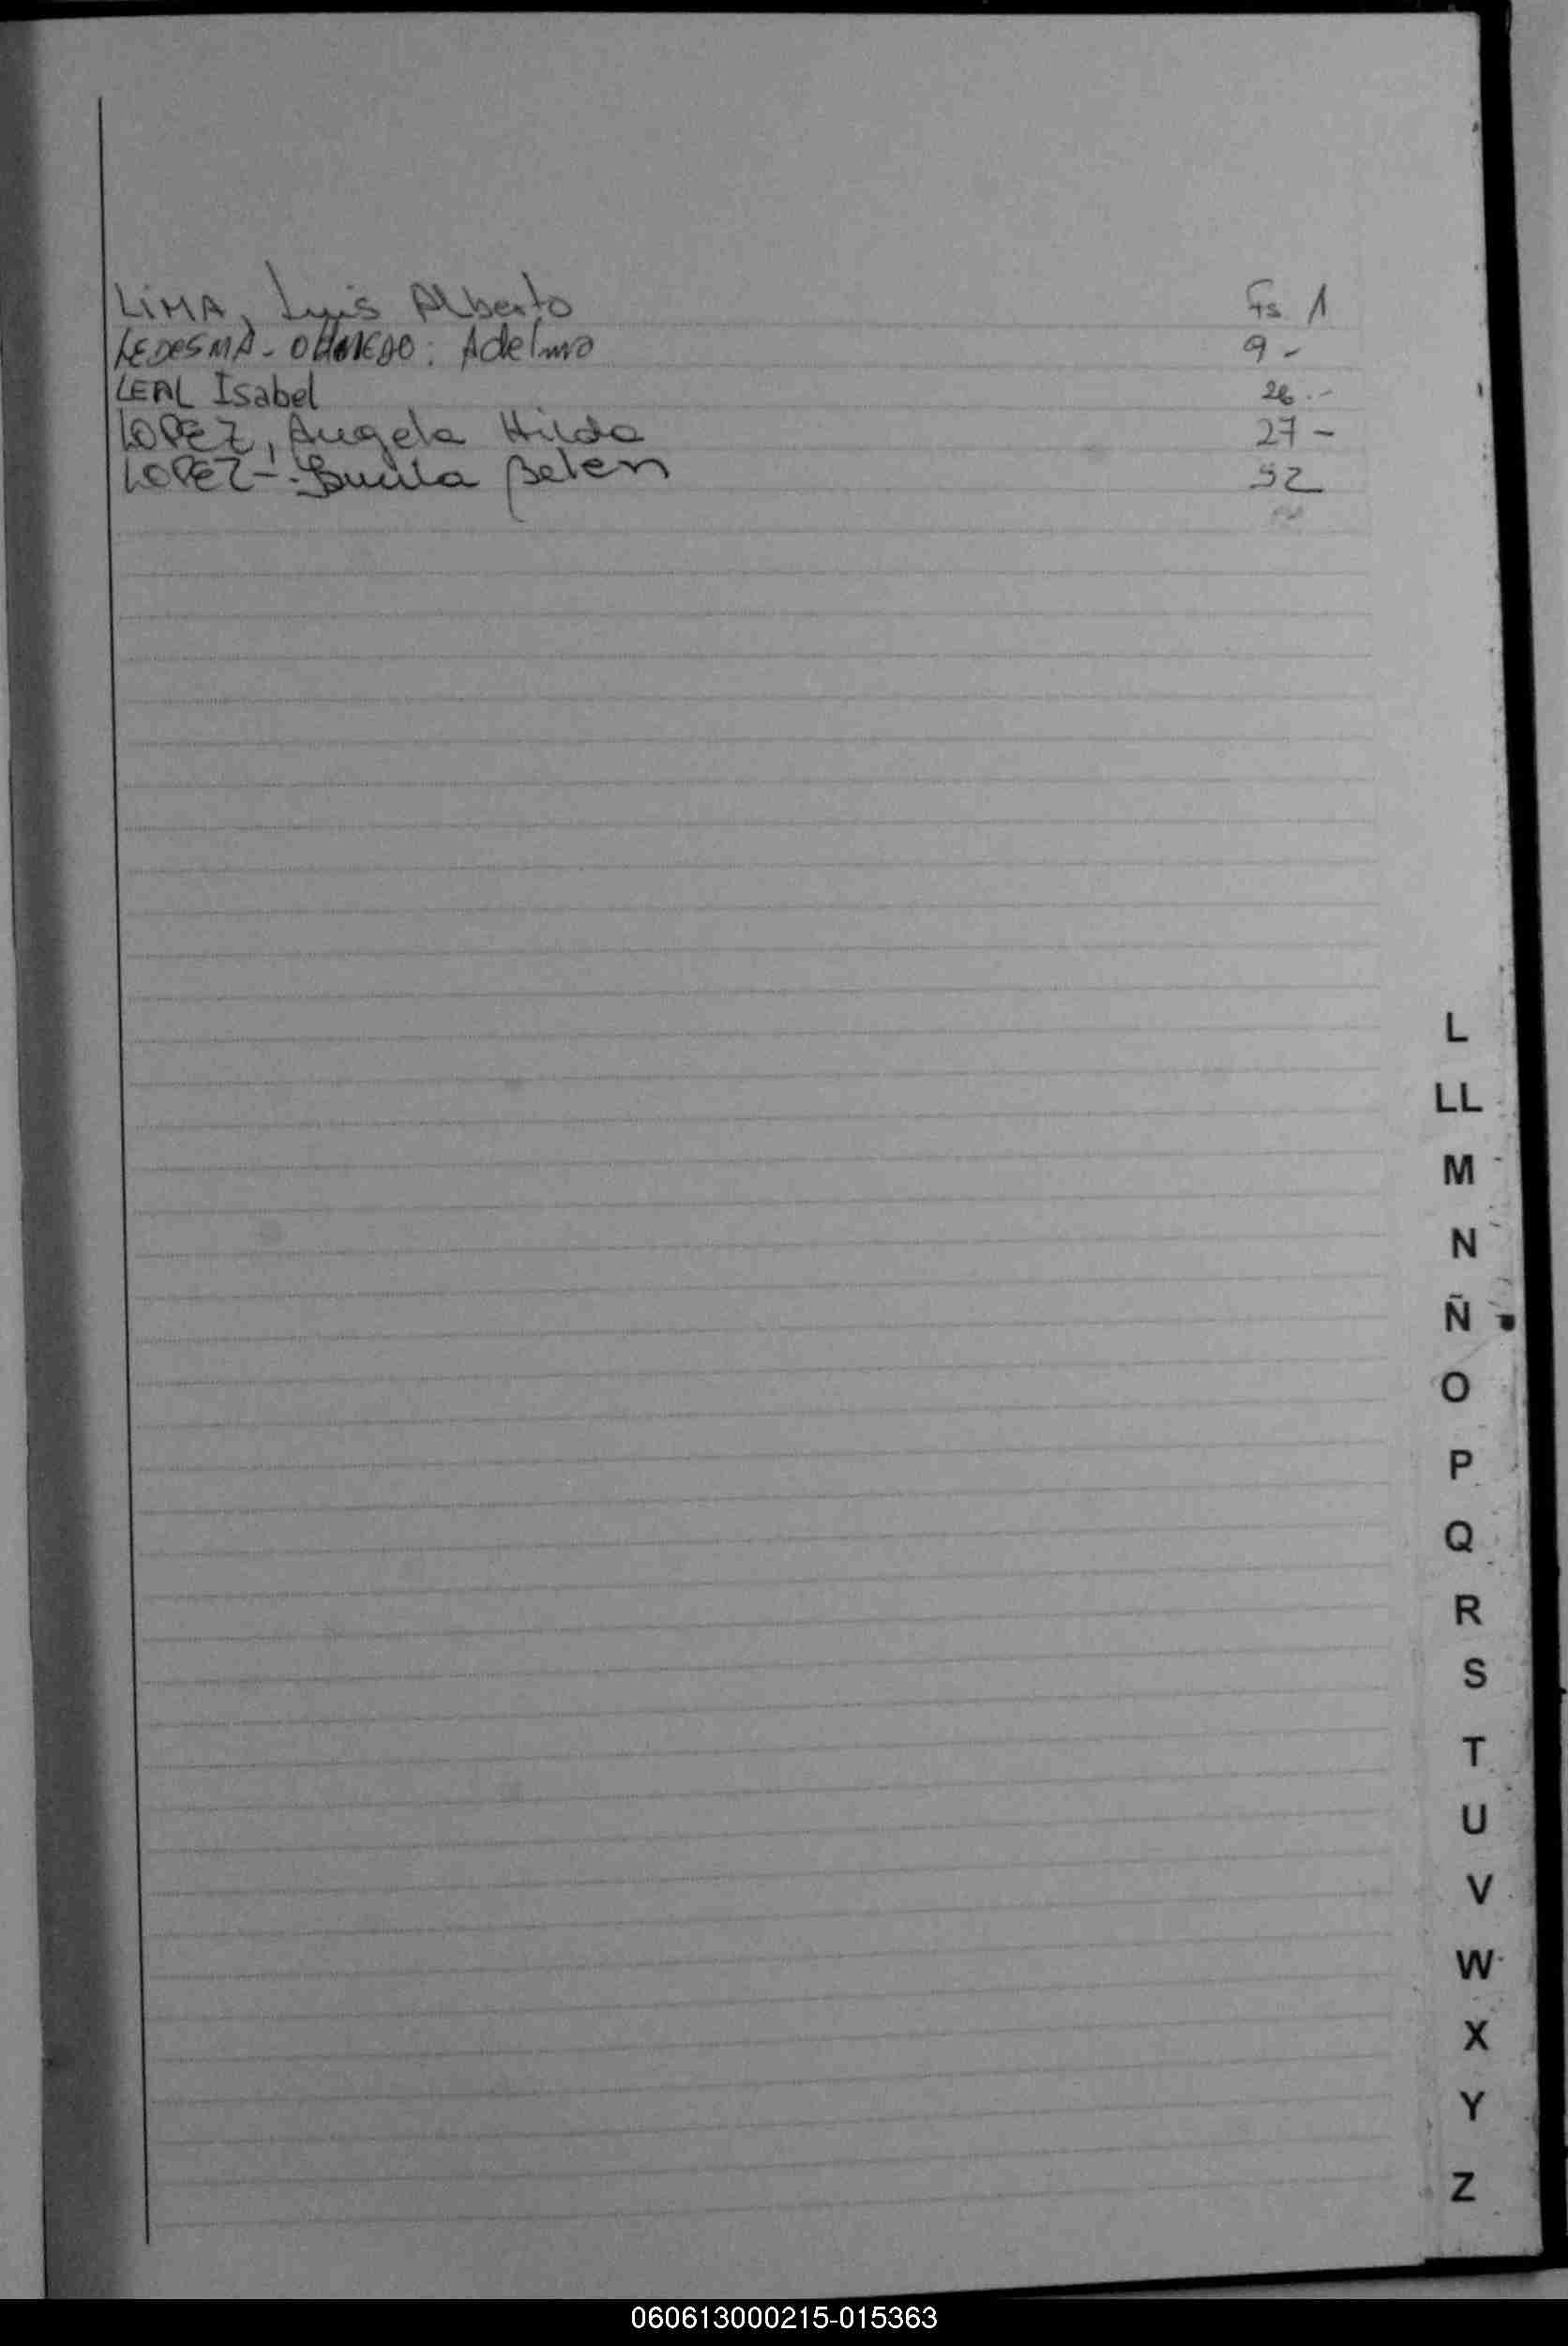 LIMA, Luis Alberto Fs 1
LEDESMA - OLMEDO: Adelmo 9 -
LEAL Isabel 26 . -
LOPEZ, Angela Hilda 27 -
LOPEZ - Belen 52
L
LL
M
N
Ñ
O
P
Q
R
S
T
U
V
W
X
Y
Z
060613000215-015363